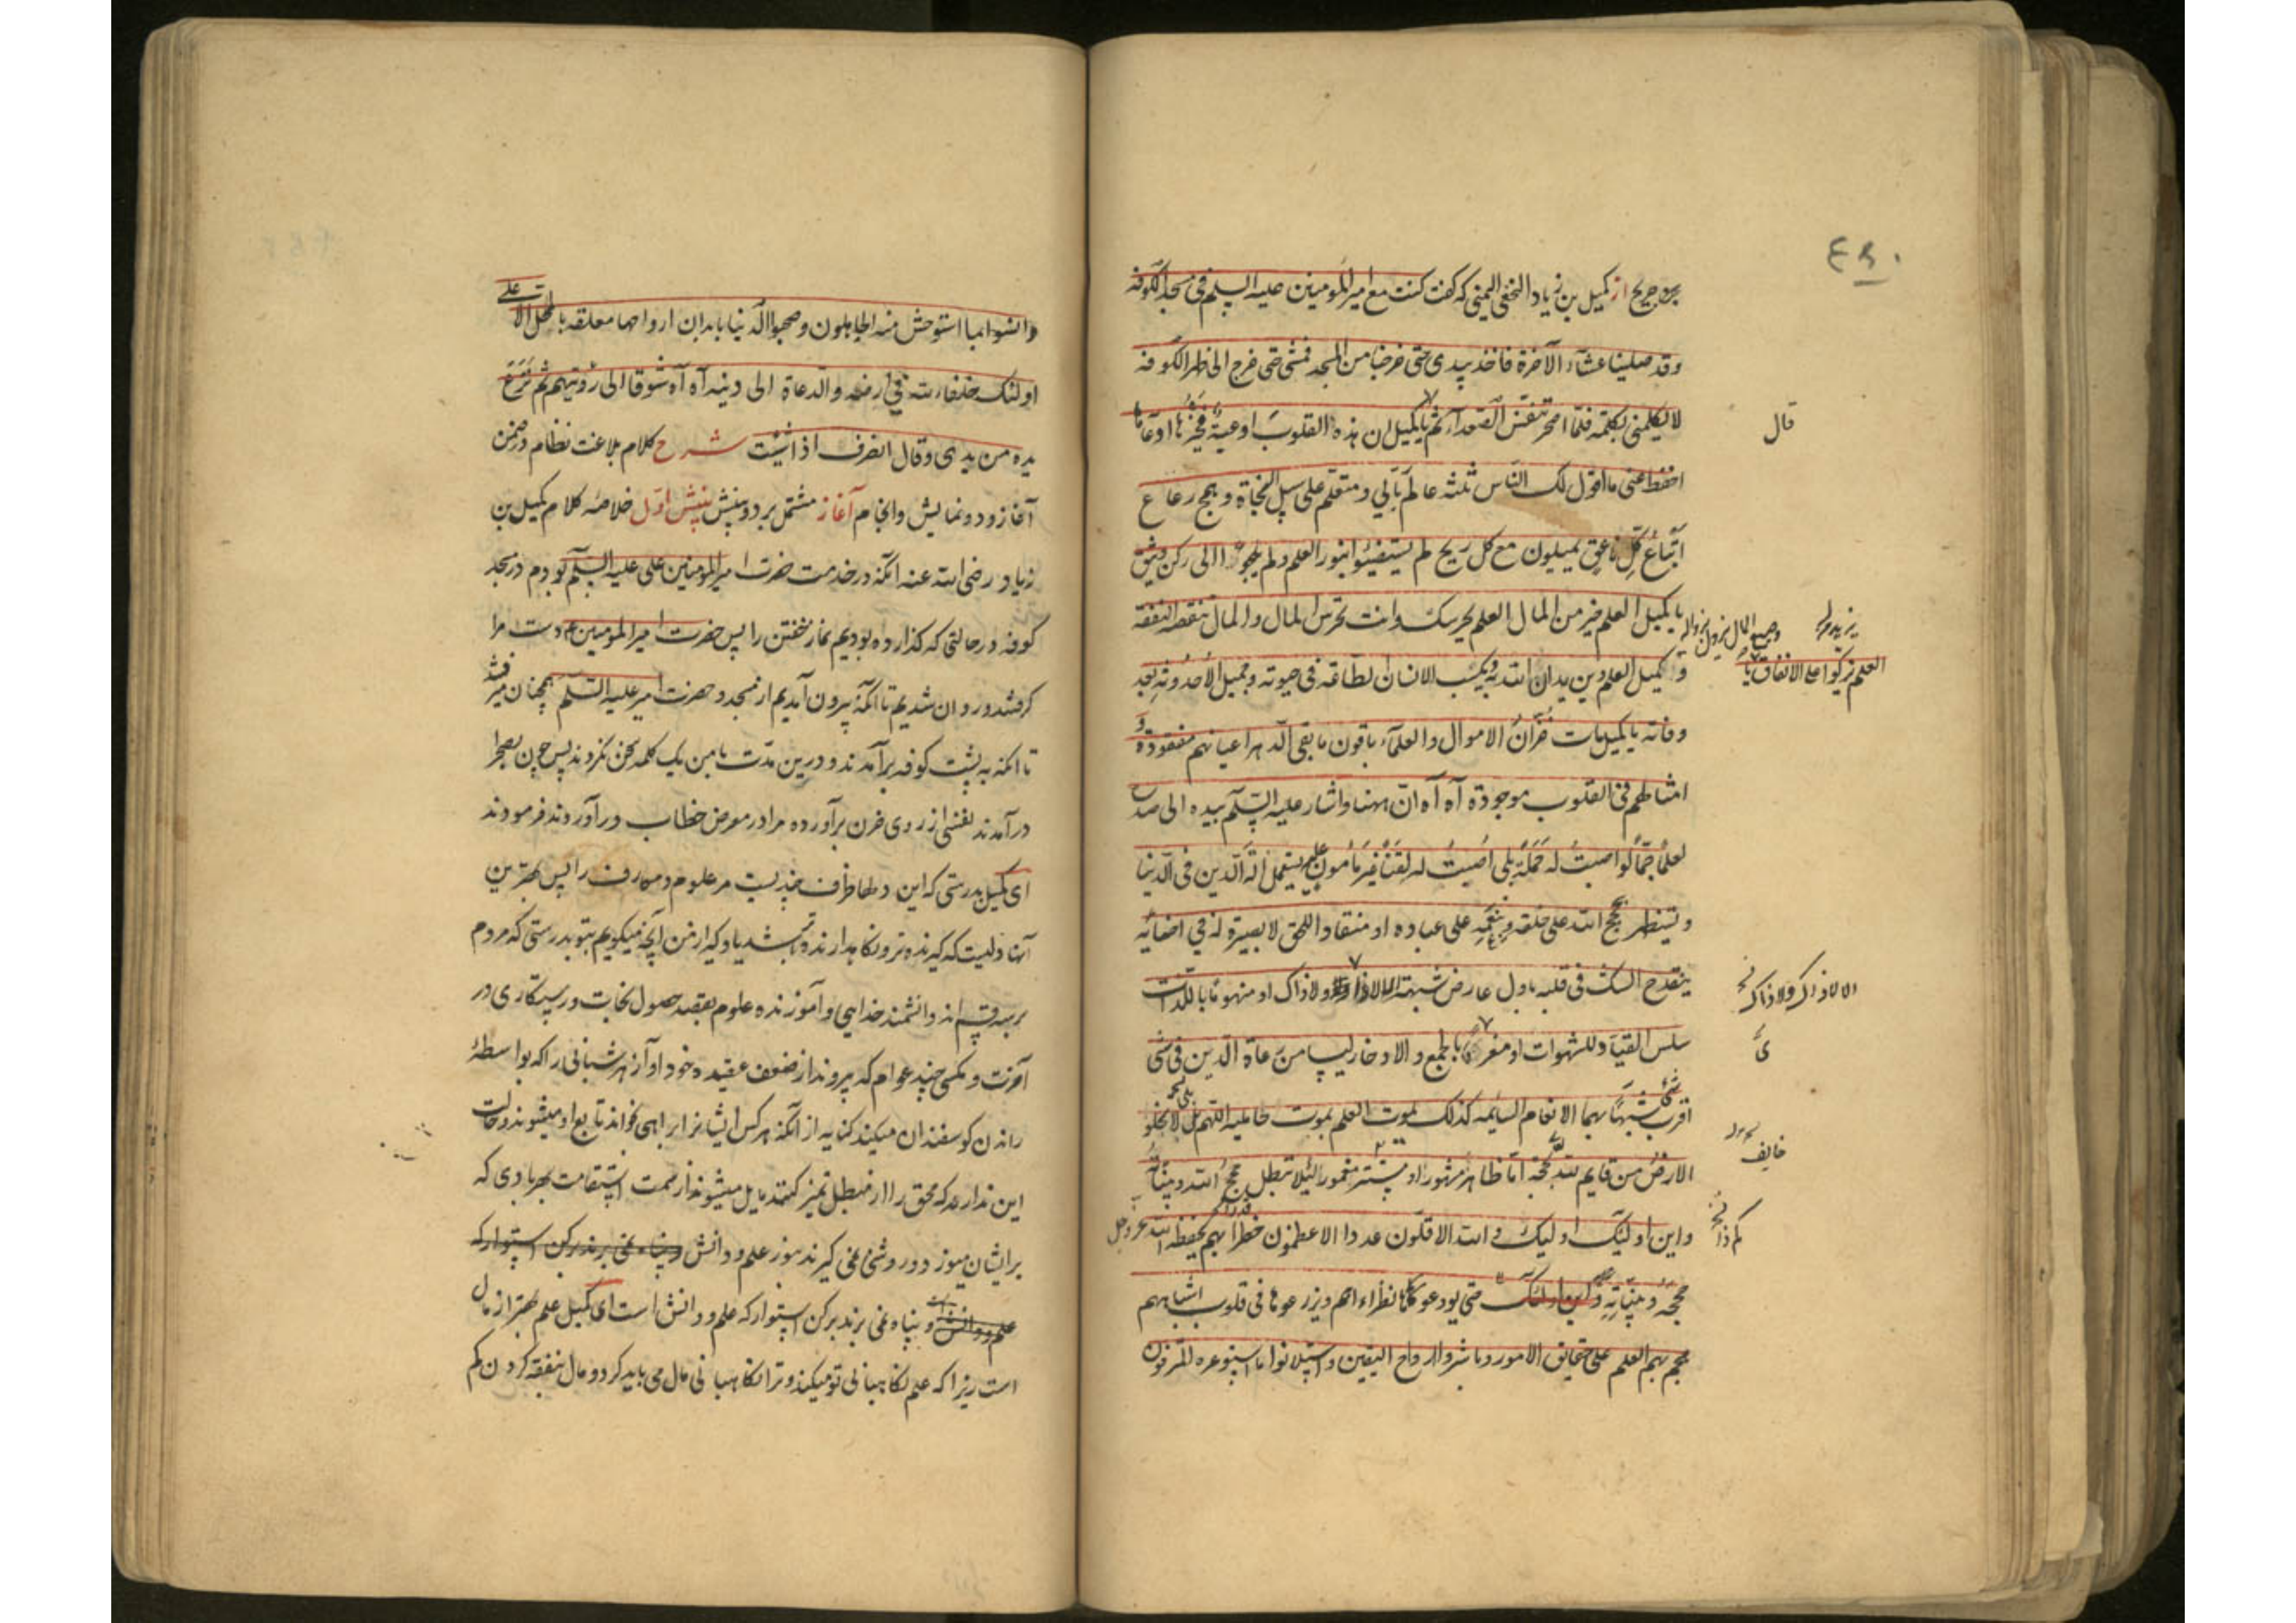 از کمیل بن زیاد النخعی الیمنی که گفت کنت مع امیر المومنین علیه السلم فی مسجد الکوفه
وقد صلینا عشآء الآخرة فاخذ بیدی حتی خرجنا من المسجد فمشی حتی خرج الی ظهر الکوفه
لا یکلمنی بکلمة فلمّا اصحر تنفّس الصّعدآء ثم یا کمیل ان هذه القلوبَ اوعیةٌ فخیرُها اوعاها
قال
احفظ عنی ما اقول لک النّاس ثلثه عالم ربّانی ومتعلم علی سبیل النجاة وهمج رعاع
اتباعُ کلِّ ناعقٍ یمیلون مع کل ریح لم یستضیئوا بنور العلم ولم یلجوٴا الی رکن وثیق
یا کمیل العلم خیر من المال العلم یحرسک وانت تحرس المال والمال تنقصه النفقه
العلم یزکوا علی الانفاق یا
کمیل العلم دین یدان الله به یکسب الانسان الطاعة فی حیوته وجمیل الأحدوثه بعد
وفاته یا کمیل مات خُزّانُ الاموال والعلمآء باقون ما بقی الدهر اعیانهم مفقودة و
امثالهم فی القلوب موجودة آه آه انّ ههنا واشار علیه السّلم بیده الی صدره
لعلماً جمّاً لو اصبتُ له حَمَلةً بلی اُصیبُ له لقناً غیر مأمونٍ علیه یستعمل آلة الدّین فی الدّنیا
ویستظهر بحجج الله علی خلقه وبنِعَمِهِ علی عباده او منقاداً للحق لا بصیرة له فی احنائه
ینقدح الشک فی قلبه باول عارض شبهة الا لا ذا ولا ذاک او منهوماً باللذات
الا لا ذاک ولا ذاک
سلس القیاد للشهوات او مغرماً بالجمع والادخار لیسا من رعاة الدّین فی شئ
اقرب شبهاً بهما الانعام السائمه کذلک یموت العلم بموت حاملیه اللهم بلی لا تخلو
الارضُ من قایم لله بحجة امّا ظاهر مشهور او مستتر مغمور لئلا تبطل حجج الله وبیّناته
خایف
واین اولئک اولیک والله الاقلّون عددا الاعظمون خطراً بهم یحفظ الله عز وجل
کم ذا
حججه وبیّناته واین اولئک حتی یودعوها نظراءهم ویزرعوها فی قلوب اشباههم
هجم بهم العلم علی حقایق الامور وباشروا ارواح الیقین واستلانوا ما استوعره المترفون
وانسوا بما استوحش منه الجاهلون وصحبوا الدّنیا بابدان ارواحها معلقه بالمحل الاعلی
اولئک خلفاء الله فی ارضه والدعاة الی دینه آه آه شوقا الی رؤیتهم ثم نَزَعَ
یده من یدی وقال انصرف اذا شئت شرح کلام بلاغت نظام در ضمن
آغاز ودو نمایش وانجام آغاز مشتمل بر دو بینش بینش اوّل خلاصه کلام کمیل بن
زیاد رضی الله عنه آنکه در خدمت حضرت امیر المومنین علی علیه السلم بودم در مسجد
کوفه در حالتی که گذارده بودیم نماز خفتن را پس حضرت امیر المومنین ع دست مرا
گرفتند وروان شدیم تا آنکه بیرون آمدیم از مسجد وحضرت امیر علیه السّلم همچنان میرفتند
تا آنکه به پشت کوفه برآمدند ودرین مدّت با من یک کلمه سخن نکردند پس چون بصحرا
درآمدند نفسی از روی حزن برآورده مرا در معرض خطاب درآوردند فرمودند
ای کمیل بدرستی که این دلها ظرف چندیست مر علوم ومعارف را پس بهترین
آنها دلیست که گیرنده تر ونگاهدارنده تر باشد یاد گیر از من آنچه میگویم بتو بدرستی که مردم
بر سه قسم اند دانشمند خدایی وآموزنده علوم بقصد حصول نجات ورستگاری در
آخرت وکسی چند عوام که پیروند از ضعف عقیده خود آواز هر شبانی را که بواسطهٔ
راندن کوسفندان میکند کنایه از آنکه هر کس ایشانرا براهی خواند تابع او میشوند وحالت
این ندارند که محق را از مبطل تمیز کنند مایل میشوند از سمت استقامت بهر بادی که
بر ایشان میوزد وروشنی نمی گیرند بنور علم ودانش وپناه نمی برند برکن استوار که
علم ودانش است وپناه نمی برند برکن استوار که علم ودانش است ای کمیل علم بهتر از مال
است زیرا که علم نگاهبانی تو میکند وترا نگاهبانی مال می باید کرد ومال بنفقه کردن کم